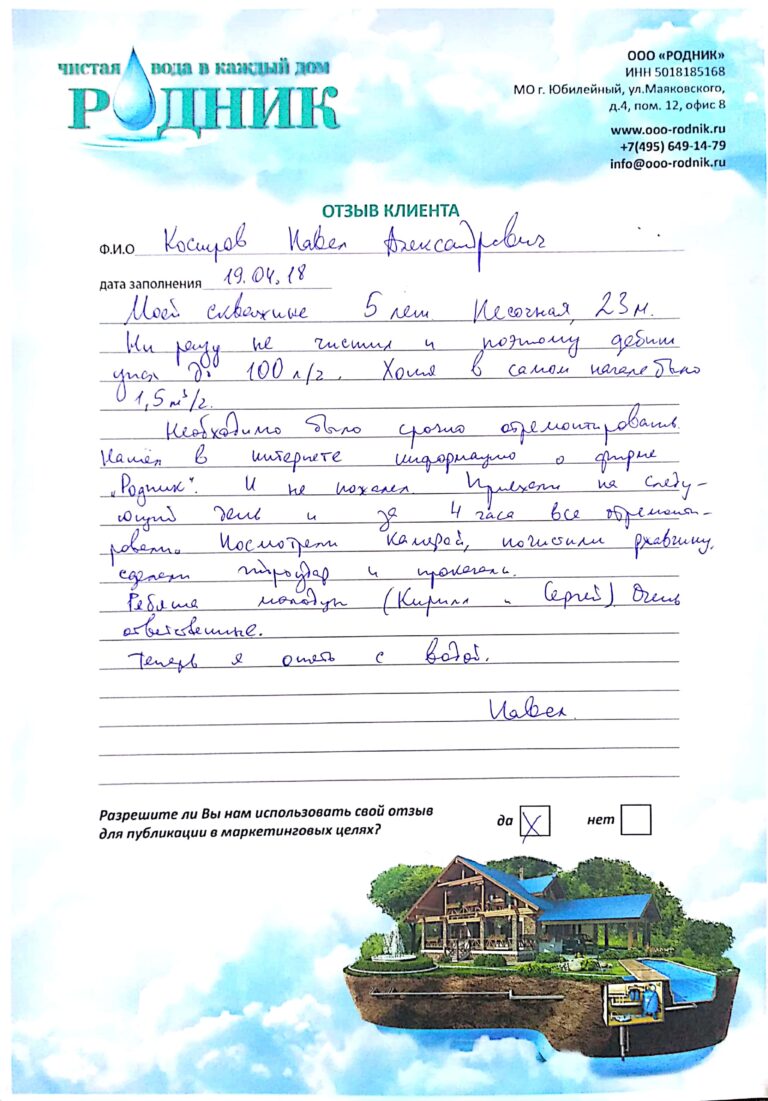 чистая вода в каждый дом
РОДНИК
ООО «РОДНИК»
ИНН 5018185168
МО г. Юбилейный, ул.Маяковского,
д.4, пом. 12, офис 8
www.ooo-rodnik.ru
+7(495) 649-14-79
info@ooo-rodnik.ru
ОТЗЫВ КЛИЕНТА
Ф.И.О Костров Павел Александрович
дата заполнения 19.04.18
Моей скважине 5 лет Песочная, 23 м.
Ни разу не чистил и поэтому дебит
упал до 100 л/ч. Хотя в самом начале было
1,5 м³/ч.
Необходимо было срочно отремонтировать.
Нашёл в интернете информацию о фирме
„Родник". И не пожалел. Приехали на следу-
ющий день и за 4 часа все отремонти-
ровали. Посмотрели камерой, почистили ржавчину,
сделали гидроудар и прокачали.
Ребята молодцы (Кирилл и Сергей). Очень
ответственные.
Теперь я опять с водой.
Павел.
Разрешите ли Вы нам использовать свой отзыв
для публикации в маркетинговых целях?
да X нет